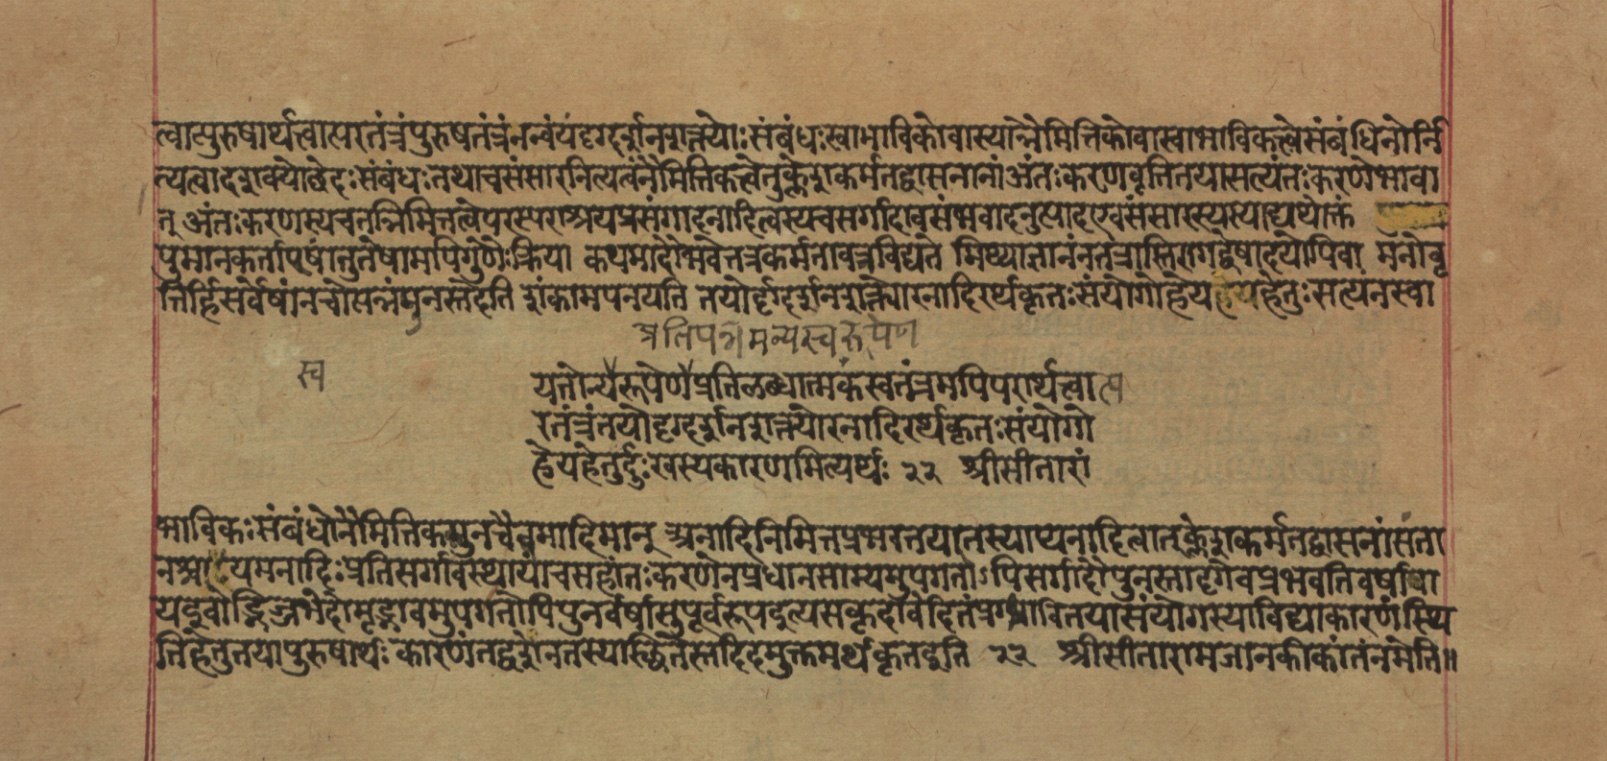 त्वात्पुरुषार्थत्वात्परतंत्रंपुरुषतंत्रंनन्वयंदृग्दर्शनशक्त्योःसंबंधःस्वाभाविकोवास्यान्नैमित्तिकोवास्वाभाविकत्वेसंबंधिनोर्नि
त्यत्वादशक्योछेदःसंबंधःतथाचसंसारनित्यत्वंनैमित्तिकत्वेतुक्लेशकर्मतद्वासनानांअंतःकरणवृत्तितयासत्यंतःकरणेभावा
त् अंतःकरणस्यचतन्निमित्तत्वेपरस्पराश्रयप्रसंगादनादित्वस्यचसर्गादावसंभवादनुत्पादएवसंसारस्यस्याद्यथोक्तं
पुमानकर्तायेषांतुतेषामपिगुणैःक्रिया कथमादौभवेत्तत्रकर्मतावन्नविद्यते मिथ्याज्ञानंनतत्रास्तिरागद्वेषादयोपिवा मनोवृ
त्तिर्हिसर्वेषांनचोत्पन्नंमनस्तदेति शंकामपनयति तयोर्दृग्दर्शनशक्त्योरनादिरर्थकृतःसंयोगोहेयहेयहेतुःसत्यंनस्वा
प्रतिपन्नमन्यस्वरूपेण
स्व
यतोन्यरूपेणप्रतिलब्धात्मकंस्वतंत्रमपिपरार्थत्वात्प
रतंत्रंतयोदृग्दर्शनशक्त्योरनादिरर्थकृतःसंयोगो
हेयहेतुर्दुःखस्यकारणमित्यर्थः २२ श्रीसीतारां
भाविकःसंबंधोनैमित्तिकस्तुनचैवमादिमान् अनादिनिमित्तप्रभवतयातस्याप्यनादित्वात्क्लेशकर्मतद्वासनांसंता
नश्चायमनादिःप्रतिसर्गावस्थायांचसहांतःकरणेनप्रधानसाम्यमुपगतोऽपिसर्गादौपुनस्तादृगेवप्रभवतिवर्षापा
यइवोद्भिज्जभेदोमृद्भावमुपगतोपिपुनर्वर्षासुपूर्वरूपइत्यसकृदावेदितंप्राग्भावितयासंयोगस्याविद्याकारणंस्थि
तिहेतुतयापुरुषार्थःकारणंतद्वशेनतस्यस्थितेस्तदिदमुक्तमर्थकृतइति २२ श्रीसीतारामजानकीकांतंनमेति॥